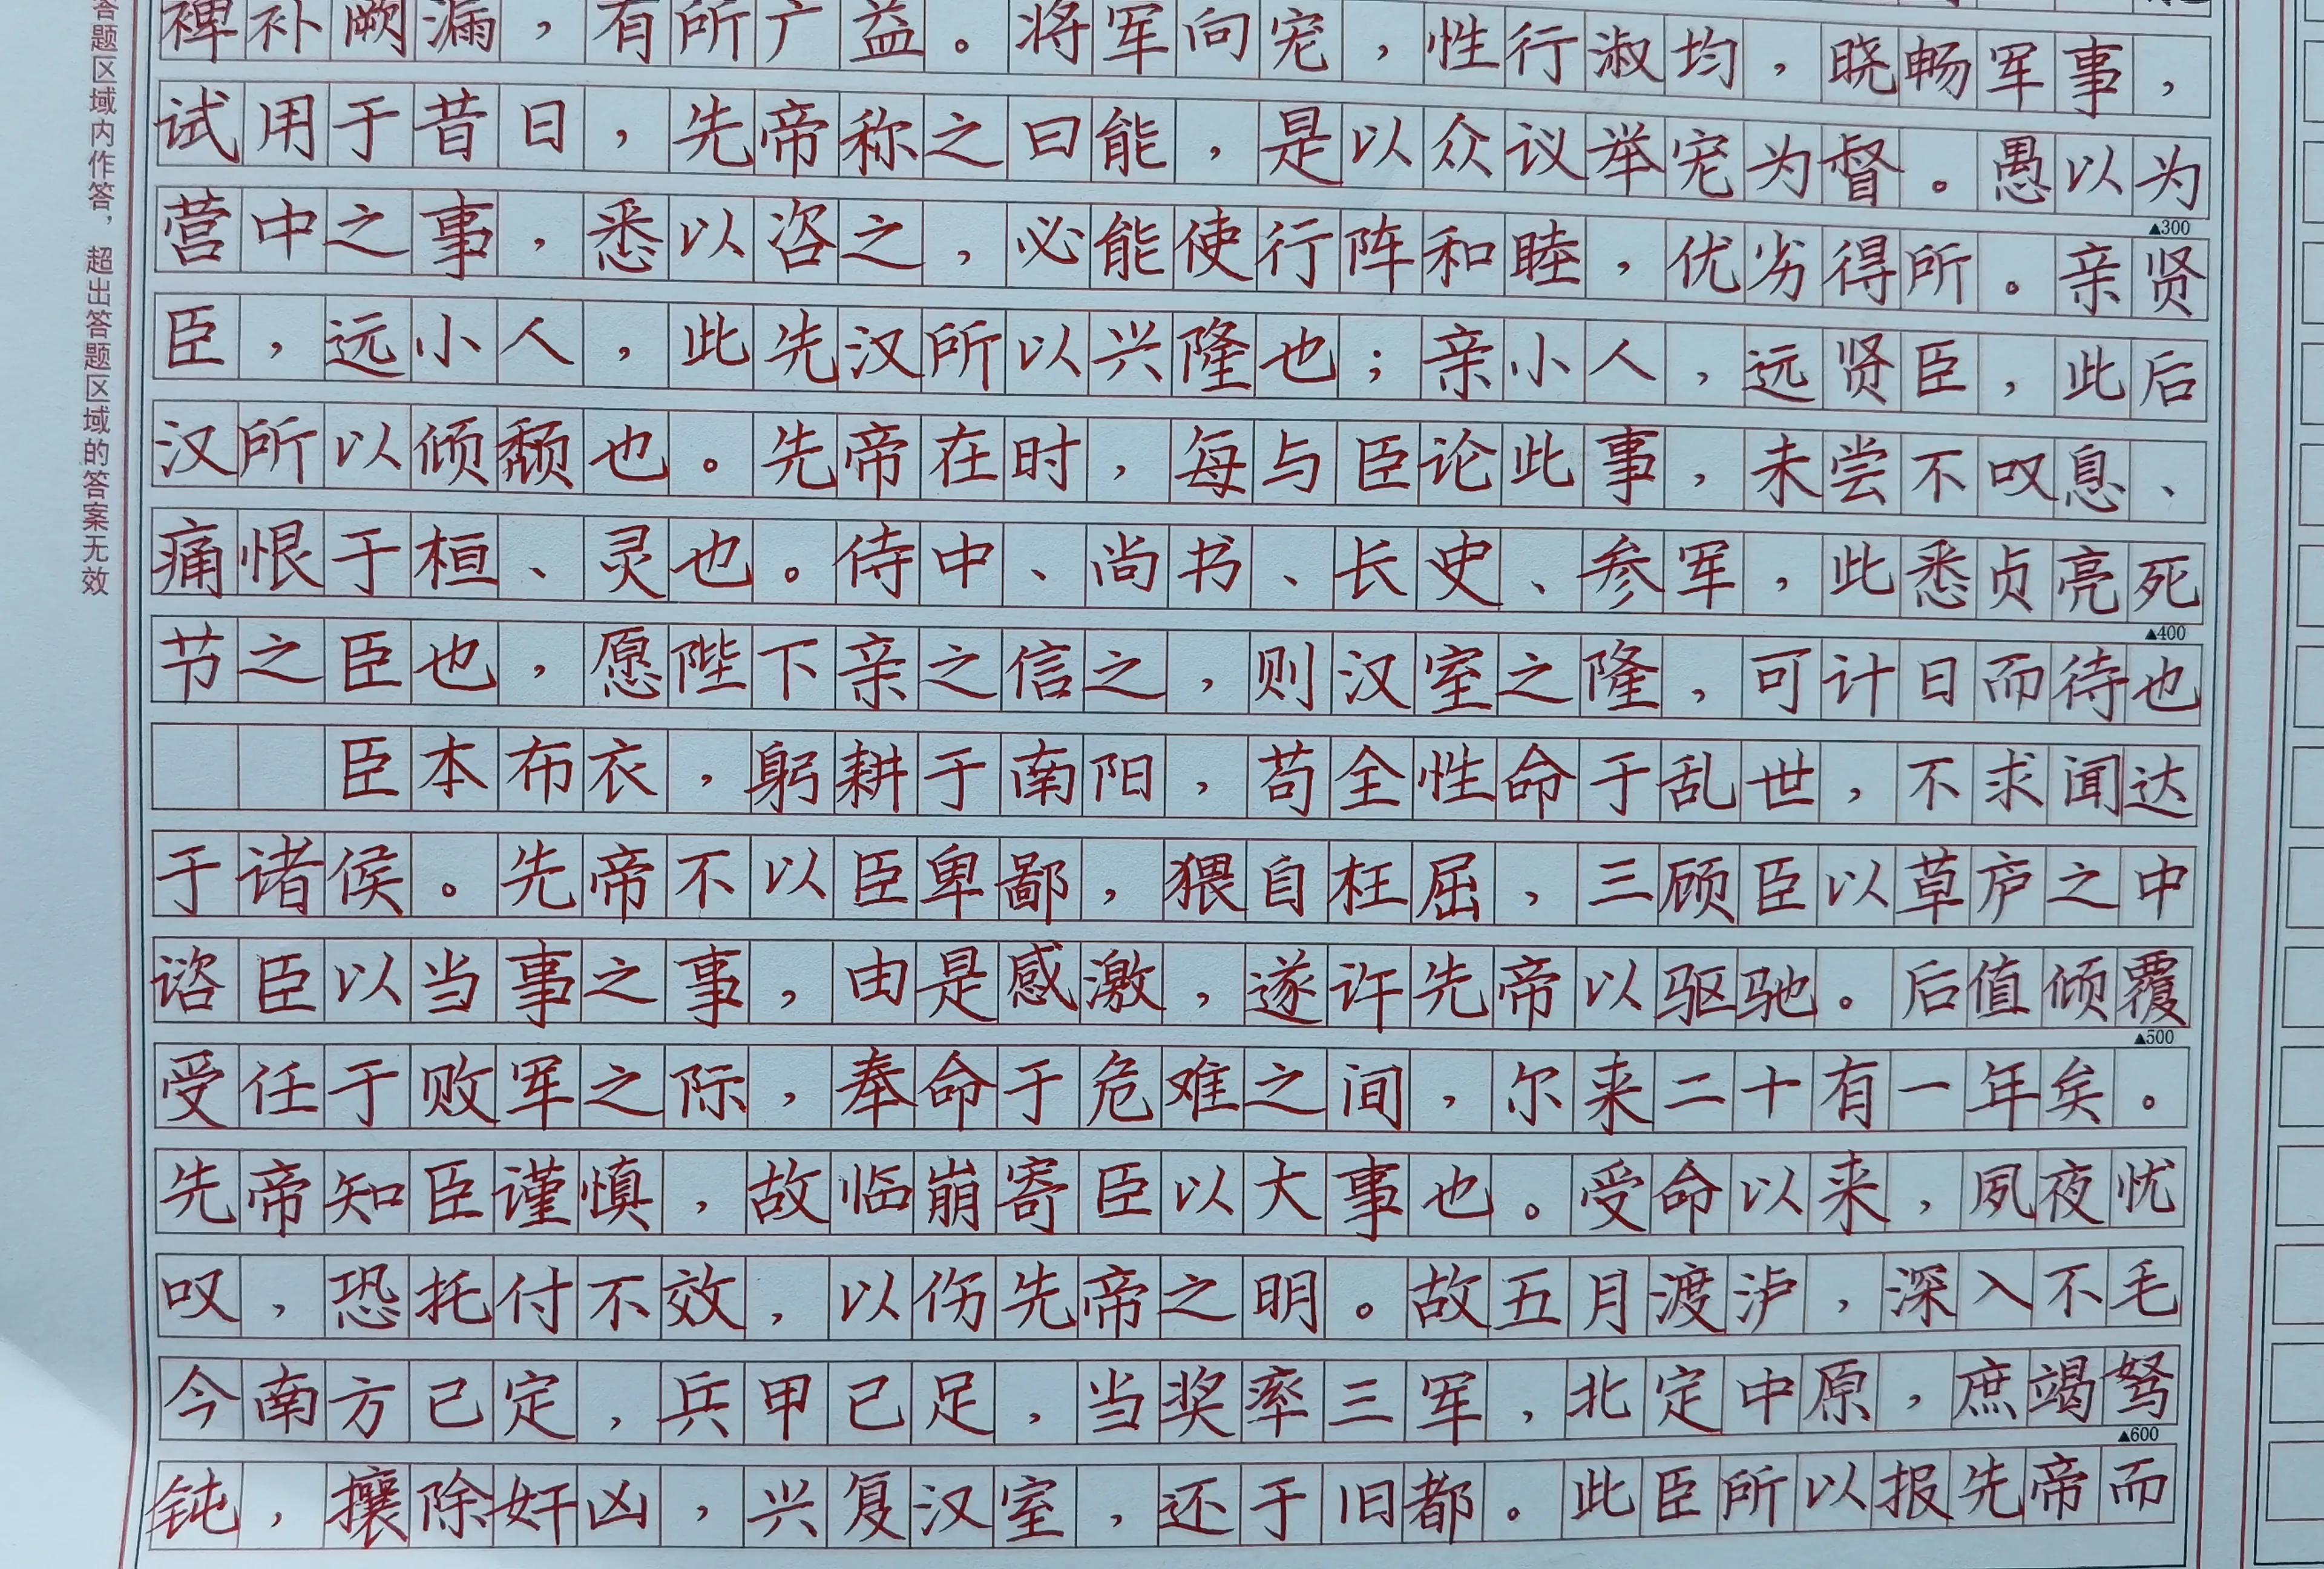 裨补阙漏，有所广益。将军向宠，性行淑均，晓畅军事，
试用于昔日，先帝称之曰能，是以众议举宠为督。愚以为
▲300
营中之事，悉以咨之，必能使行阵和睦，优劣得所。亲贤
臣，远小人，此先汉所以兴隆也；亲小人，远贤臣，此后
汉所以倾颓也。先帝在时，每与臣论此事，未尝不叹息、
痛恨于桓、灵也。侍中、尚书、长史、参军，此悉贞亮死
▲400
节之臣也，愿陛下亲之信之，则汉室之隆，可计日而待也
臣本布衣，躬耕于南阳，苟全性命于乱世，不求闻达
于诸侯。先帝不以臣卑鄙，猥自枉屈，三顾臣以草庐之中
谘臣以当事之事，由是感激，遂许先帝以驱驰。后值倾覆
▲500
受任于败军之际，奉命于危难之间，尔来二十有一年矣。
先帝知臣谨慎，故临崩寄臣以大事也。受命以来，夙夜忧
叹，恐托付不效，以伤先帝之明。故五月渡泸，深入不毛
今南方已定，兵甲已足，当奖率三军，北定中原，庶竭驽
▲600
钝，攘除奸凶，兴复汉室，还于旧都。此臣所以报先帝而
答题区域内作答，超出答题区域的答案无效